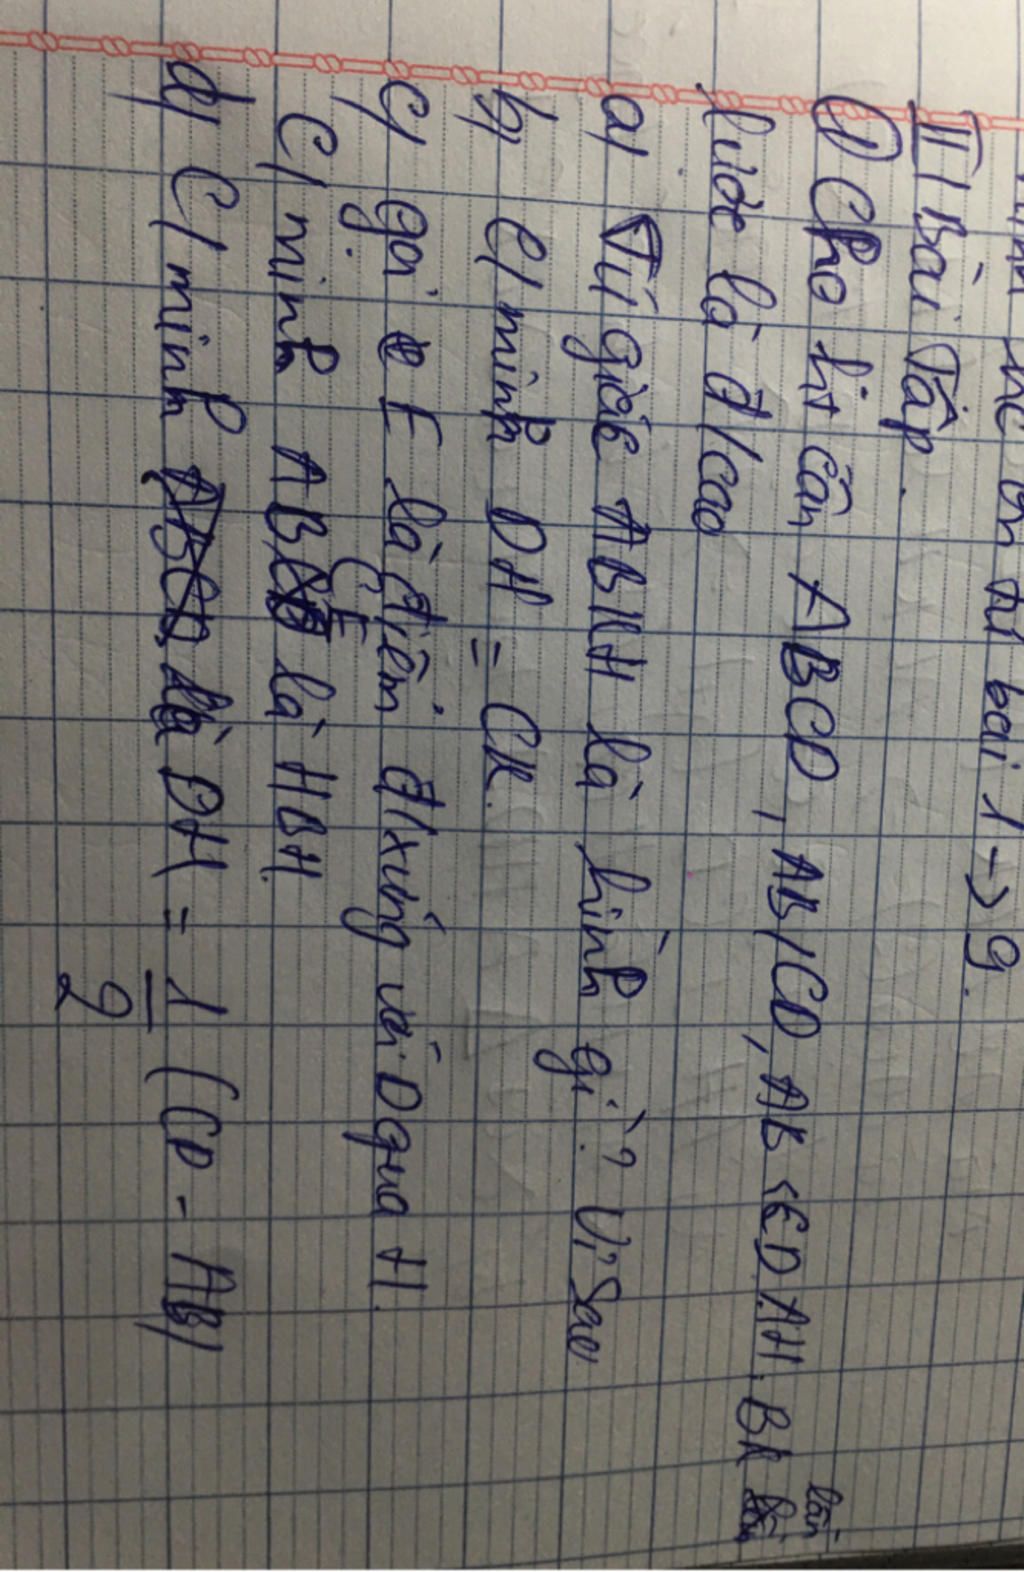 bài 1 → 9.
II/ Bài Tập.
① Cho ht cân ABCD, AB//CD, AB < CD. AH. BK lần
lược là đ/cao
a/ Tứ giác ABKH là hình gì? Vì Sao
b/ C/minh DH = CK.
c/ gọi E là điểm đ/xứng với D qua H.
C/minh ABCE là HBH.
d/ C/minh DH = 1/2 (CD - AB)